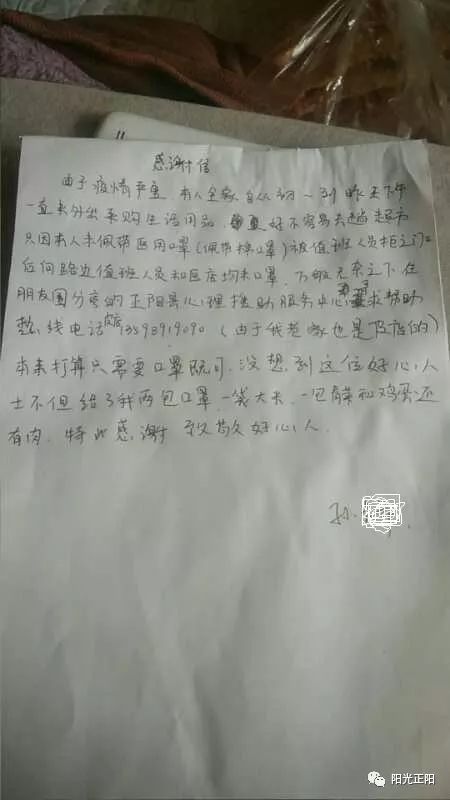 感谢信
由于疫情严重,本人全家自从初一~到昨天下午
一直未外出采购生活用品,好不容易去趟超市
只因本人未佩带医用口罩(佩带棉口罩)被值班人员拒之门
任何路边值班人员和医店均未口罩,万般无奈之下在
朋友圈分享的正阳县心理援助服务中心 求帮助
热线电话 13593919090(由于我老家也是 店的)
本来打算只需要口罩既可,没想到这位好心人
士不但给了我两包口罩,一袋大米,一包 和鸡蛋还
有肉,特此感谢 致敬好心人.
孙
阳光正阳